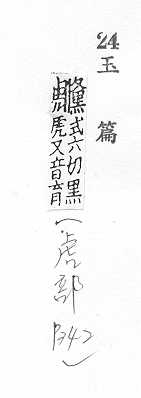 24
玉篇
虪式六切黑
虎又音育
(虎部 P342)